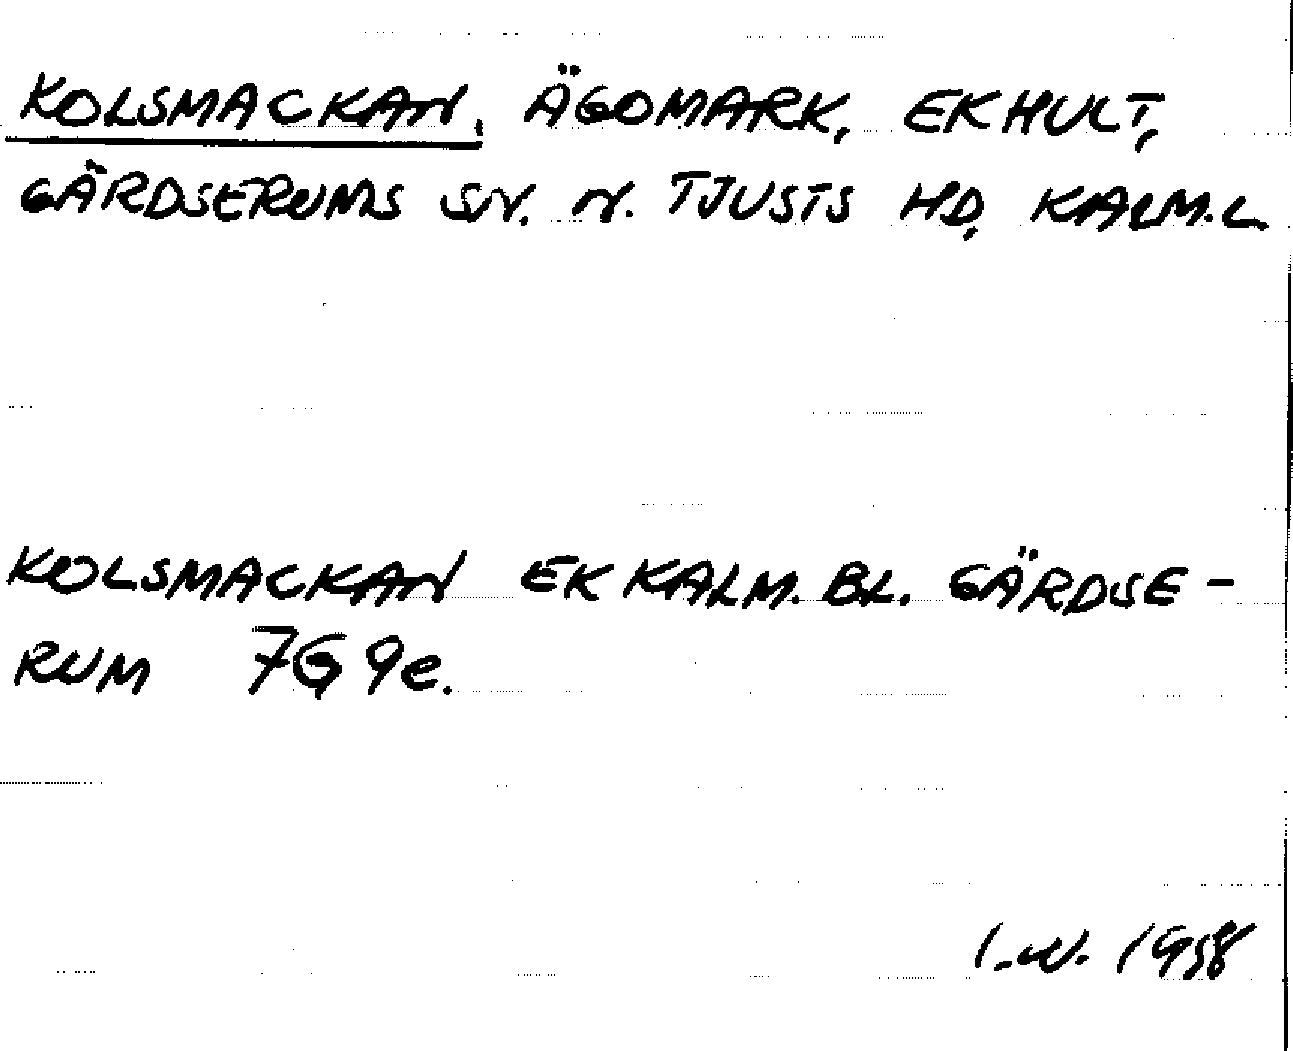 KOLSMACKAN, ÄGOMARK, EKHULT,
GÄRDSERUMS SN. N. TJUSTS HD, KALM.L.
KOLSMACKAN EK KALM. BL. GÄRDSE-
RUM 7G 9e.
1958